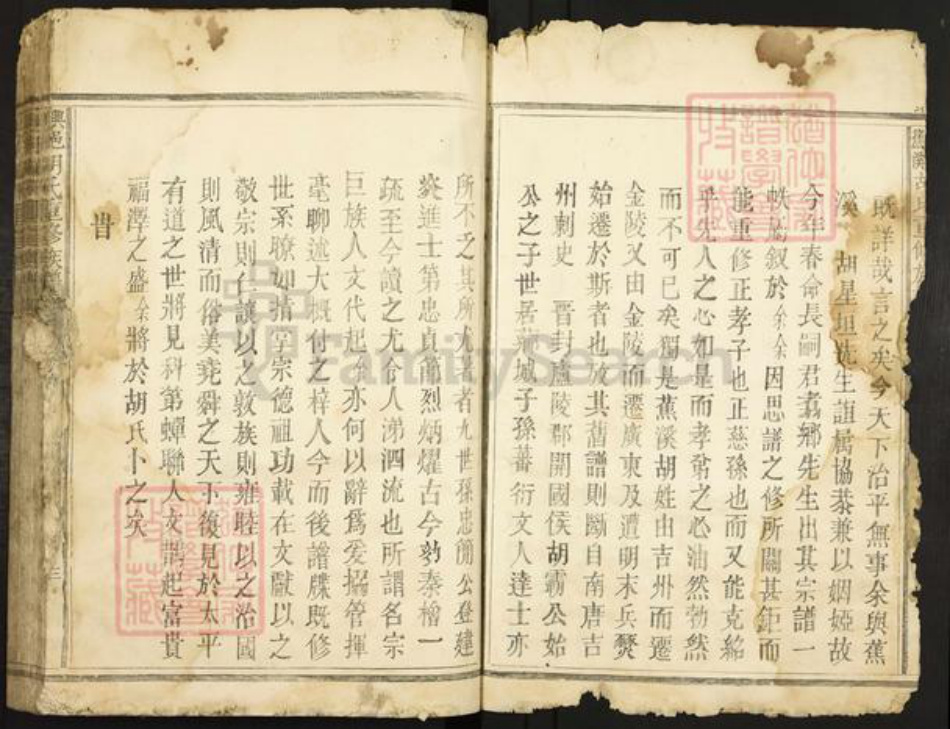 既詳哉言之矣今天下治平無事余與蕉
溪 胡星垣先生誼屬協恭兼以姻婭故
今年春命長嗣君翥鄉先生出其宗譜一
帙屬叙於余余因思譜之修所關甚鉅而
能重修正孝子也正慈孫也而又能克紹
乎先人之心如是而孝弟之心油然勃然
而不可已矣獨是蕉溪胡姓由吉州而遷
金陵又由金陵而遷廣東及遭明末兵燹
始遷於斯者也攷其舊譜則斷自南唐吉
州刺史 晋封廬陵郡開國侯胡霸公始
公之子世居 城子孫蕃衍文人達士亦
所不乏其所尤著者九世孫忠簡公登建
炎進士第忠貞節烈炳燿古今劾秦檜一
疏至今讀之尤令人涕泗流也所謂名宗
巨族人文代起余亦何以辭爲爰搦管揮
毫聊述大概付之梓人今而後譜牒既修
世系瞭如指掌宗德祖功載在文獻以之
敬宗則仁讓以之敦族則雍睦以之治國
則風清而俗美堯舜之天下復見於太平
有道之世將見科第蟬聯人文鵲起富貴
福澤之盛余將於胡氏卜之矣
旹
興邑胡氏重修族譜
三
FamilySearch